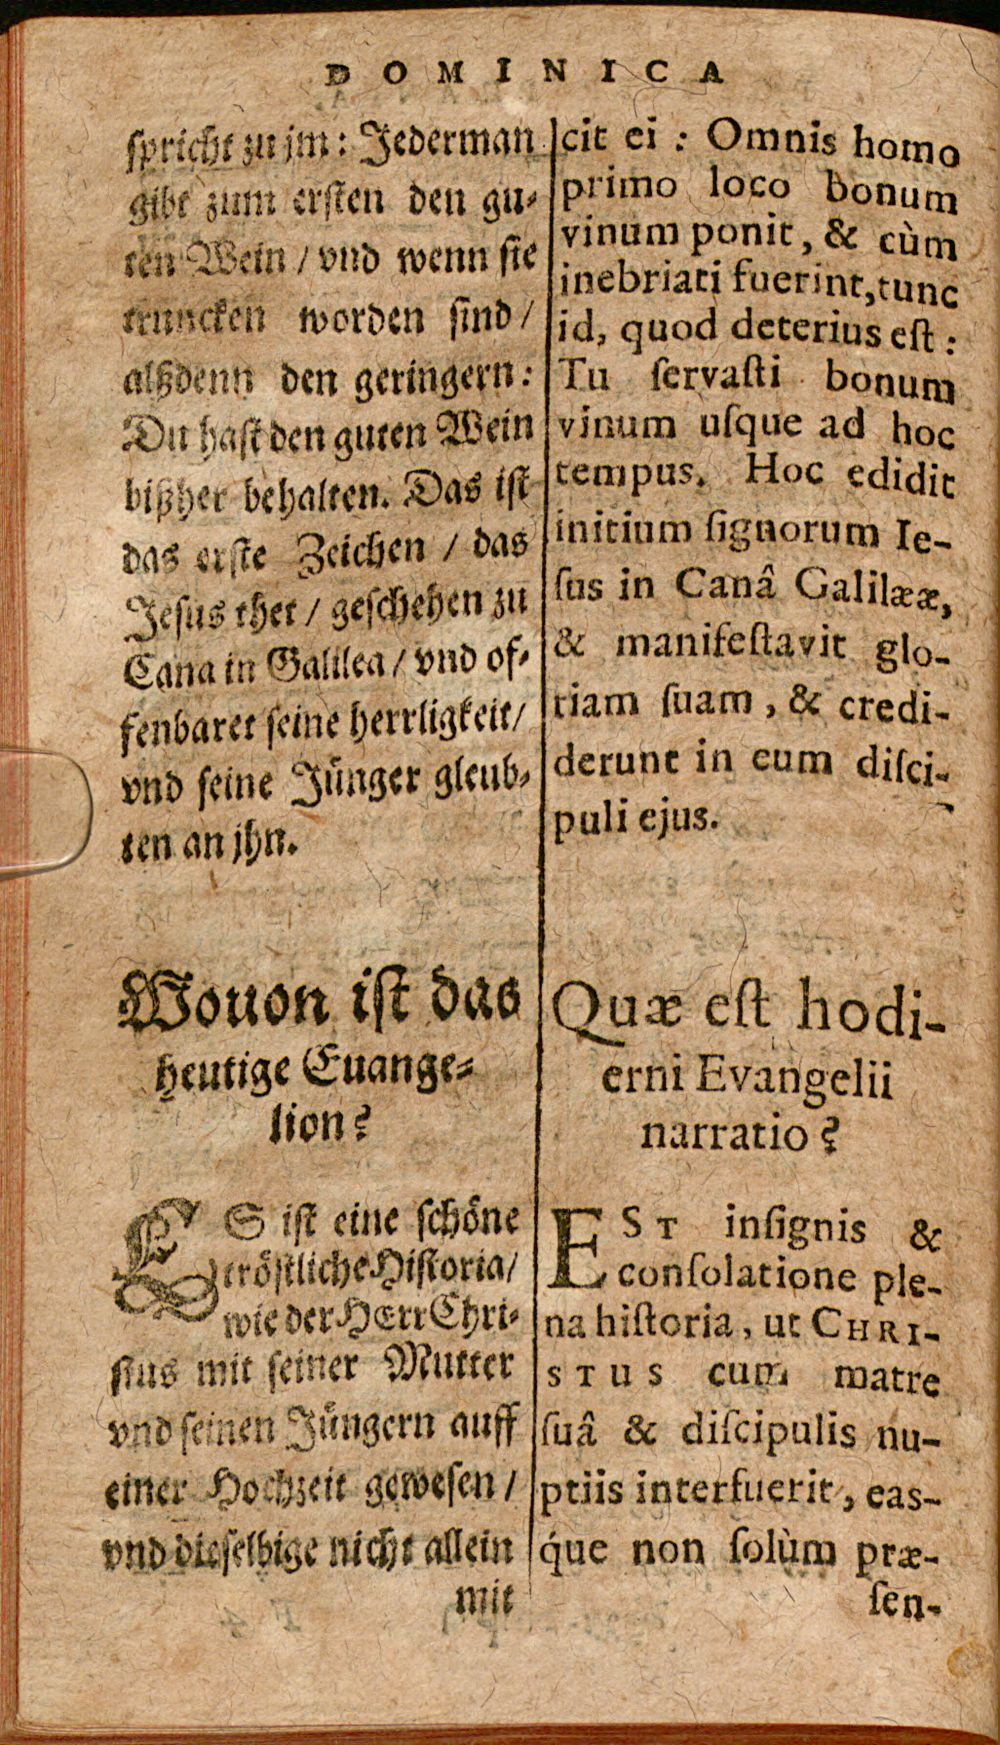 DOMINICA
spricht zu jm: Jederman
gibt zum ersten den gu-
ten Wein / vnd wenn sie
truncken worden sind /
alßdenn den geringern:
Du hast den guten Wein
bißher behalten. Das ist
das erste Zeichen / das
Jesus thet / geschehen zu
Cana in Galilea / vnd of-
fenbaret seine herrligkeit /
vnd seine Jünger gleub-
ten an jhn.
Wouon ist das
heutige Euange-
lion?
ES ist eine schöne
tröstliche Historia /
wie der HErr Chri-
stus mit seiner Mutter
vnd seinen Jüngern auff
einer Hochzeit gewesen /
vnd dieselbige nicht allein
mit
cit ei : Omnis homo
primo loco bonum
vinum ponit, & cùm
inebriati fuerint, tunc
id, quod deterius eſt :
Tu ſervaſti bonum
vinum uſque ad hoc
tempus. Hoc edidit
initium ſignorum Ie-
ſus in Canâ Galilææ,
& manifeſtavit glo-
riam ſuam, & credi-
derunt in eum diſci-
puli ejus.
Quæ eſt hodi-
erni Evangelii
narratio?
EST inſignis &
conſolatione ple-
na hiſtoria, ut CHRI-
STUS cum matre
ſuâ & diſcipulis nu-
ptiis interfuerit, eas-
q́ue non ſolùm præ-
ſen-